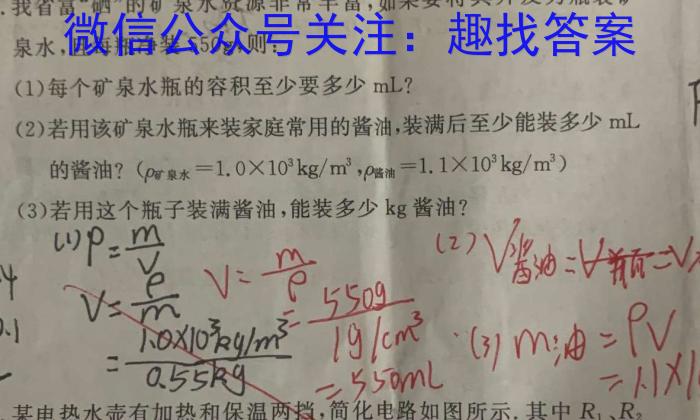 .我省富“硒”的矿泉水资源非常丰富,如果要将其开发为瓶装矿
微信公众号关注：趣找答案
泉水,且每瓶净装550g,则:
(1)每个矿泉水瓶的容积至少要多少 mL?
(2)若用该矿泉水瓶来装家庭常用的酱油,装满后至少能装多少 mL
的酱油? (ρ矿泉水=1.0×10³kg/m³,ρ酱油=1.1×10³kg/m³)
(3)若用这个瓶子装满酱油,能装多少 kg 酱油?
(1) ρ=m/V
V=ρ/m
=1.0×10³kg/m³/0.55kg
V=m/ρ
=550g/1g/cm³
=550mL
(2) V酱油=V瓶=V
(3) m油=ρV
=1.1×1
.某电热水壶有加热和保温两挡,简化电路如图所示.其中 R₁、R₂